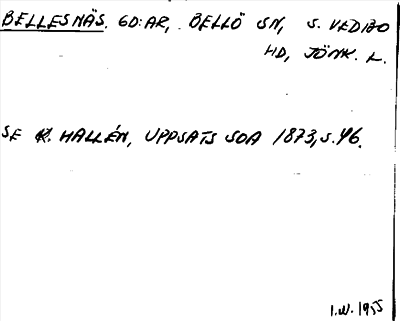 BELLESNÄS. GD:AR, BELLÖ SN, S. VEDBO
HD, JÖNK. L.
SE R. HALLÉN, UPPSATS SOA 1873, S. 46.
I.W. 1955